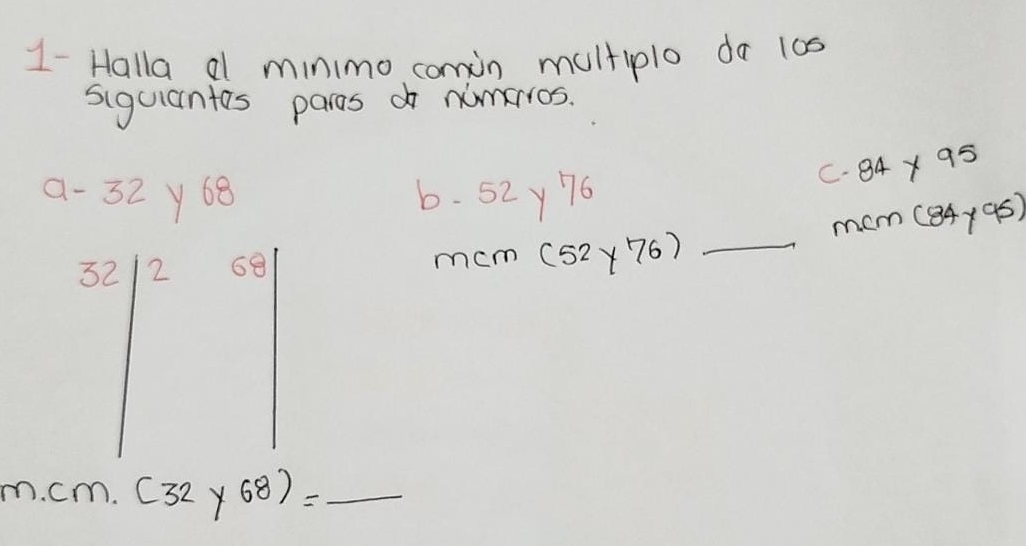 1- Halla el minimo común multiplo de los
siguientes pares de números.
a- 32 y 68
b- 52 y 76
c- 84 y 95
32 | 2
68 |
mcm (52 y 76) ____
mcm (84 y 95)
m.cm. (32 y 68) = ____